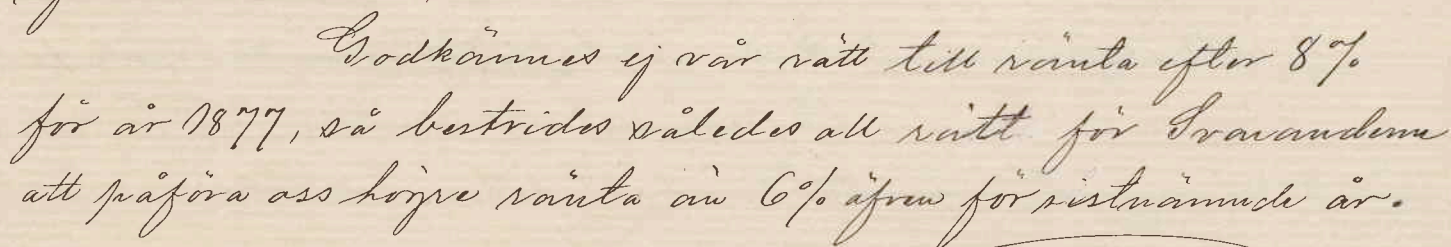 Godkännes ej vår rätt till ränta efter 8%
för år 1877, så bestrides således all rätt för Svaranderne
att påföra oss högre ränta än 6% äfven för sistnämnde år.